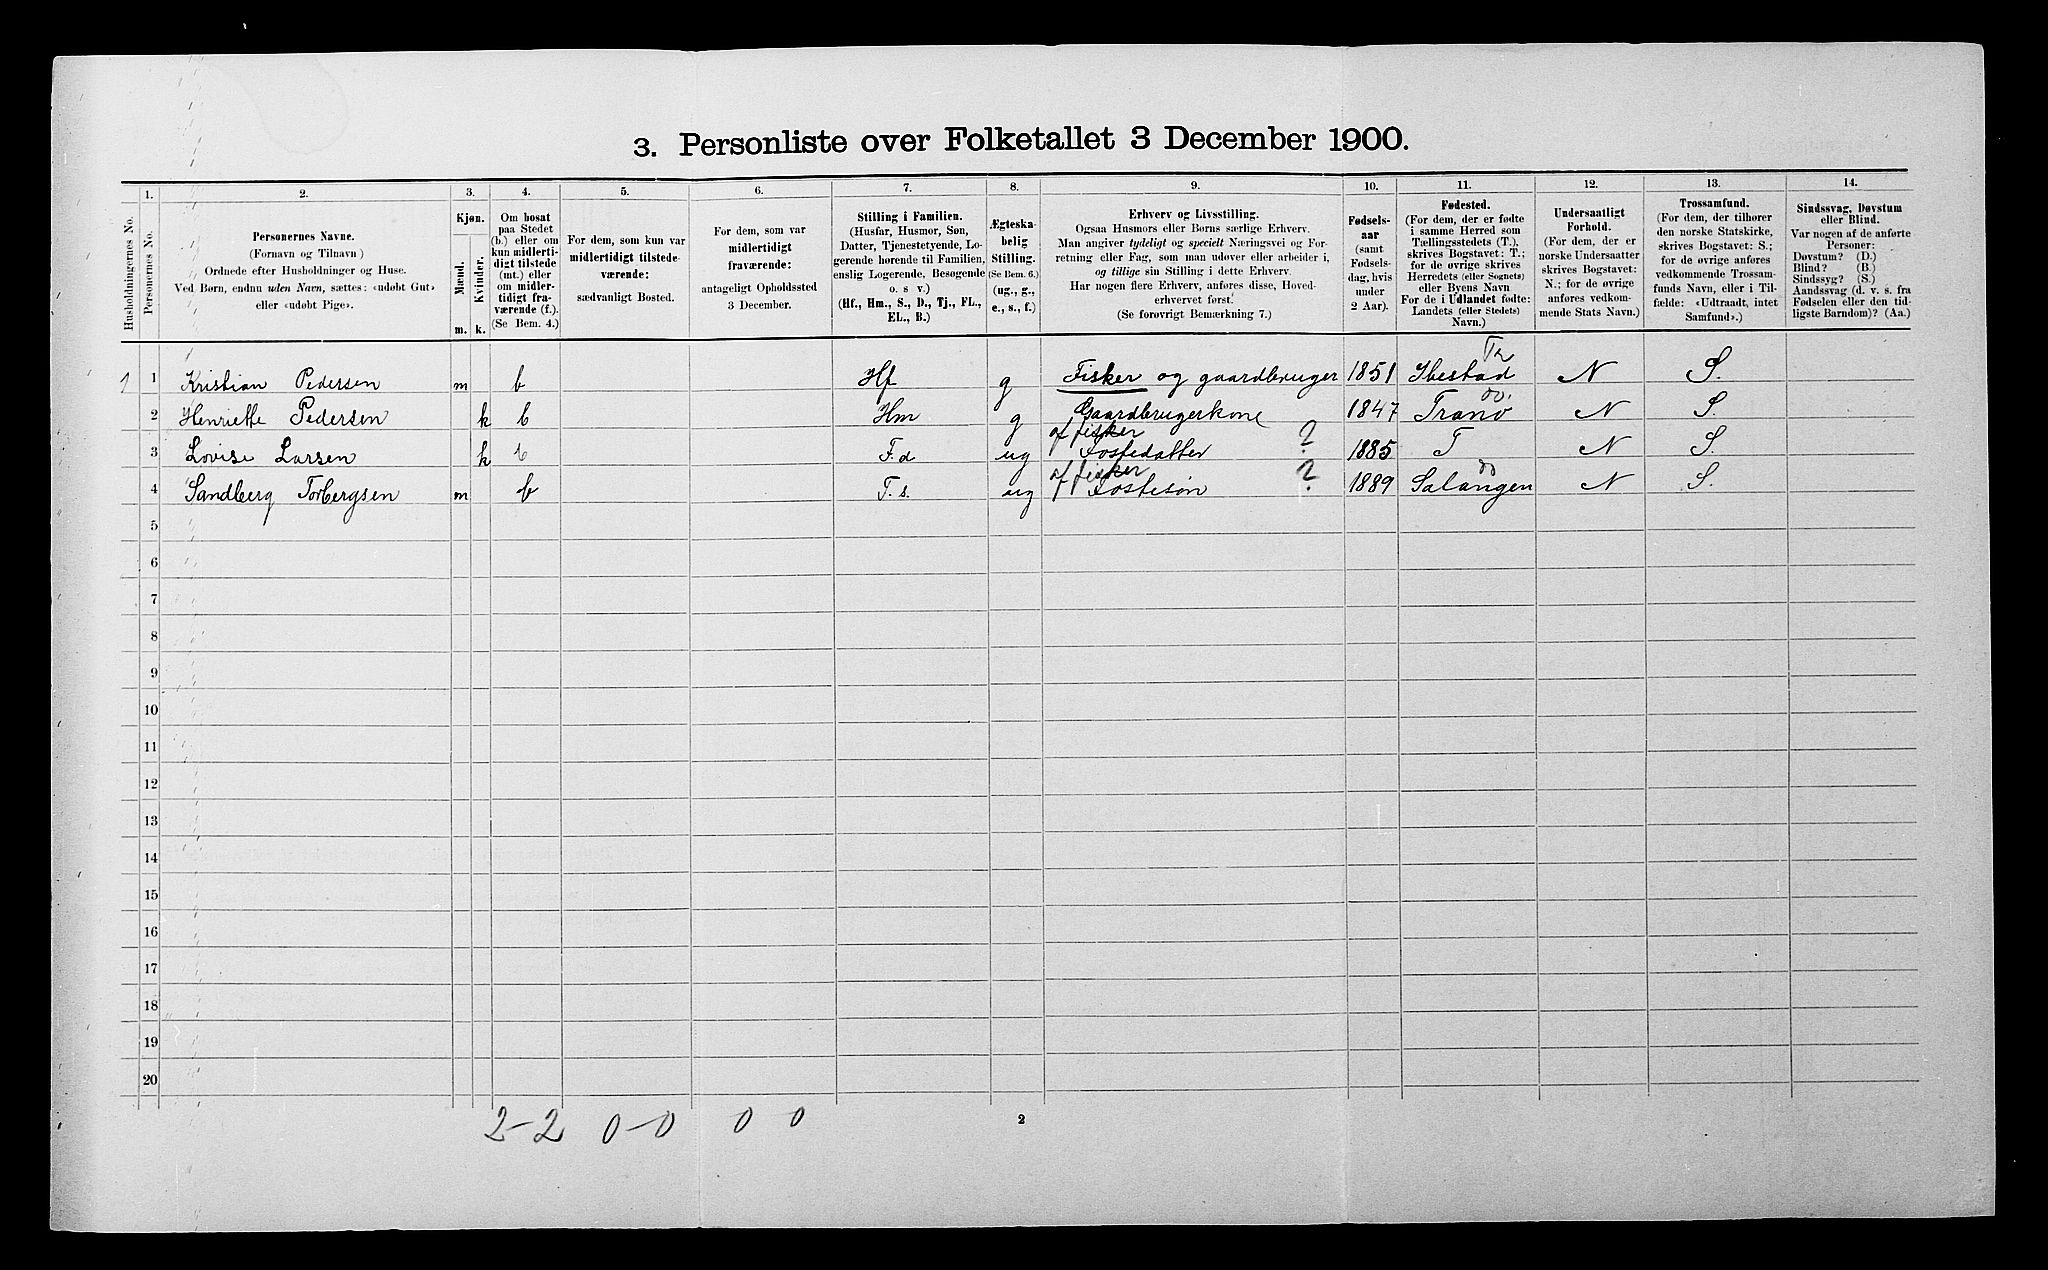 3. Personliste over Folketallet 3 December 1900.
1. 2. 3. 4. 5. 6. 7. 8. 9. 10. 11. 12. 13. 14.
Husholdningernes No.
Personernes No.
Personernes Navne.
(Fornavn og Tilnavn)
Ordnede efter Husholdninger og Huse.
Ved Børn, endnu uden Navn, sættes: «udøbt Gut»
eller «udøbt Pige».
Kjøn.
Mænd.
Kvinder.
m. k.
Om bosat
paa Stedet
(b.) eller om
kun midler-
tidigt tilstede
(mt.) eller
om midler-
tidigt fra-
værende (f.).
(Se Bem. 4.)
For dem, som kun var
midlertidigt tilstede-
værende:
sædvanligt Bosted.
For dem, som var
midlertidigt
fraværende:
antageligt Opholdssted
3 December.
Stilling i Familien.
(Husfar, Husmor, Søn,
Datter, Tjenestetyende, Lo-
gerende hørende til Familien,
enslig Logerende, Besøgende
o. s v.)
(Hf., Hm., S., D., Tj., FL.,
EL., B.)
Ægteska-
belig
Stilling.
(Se Bem. 6.)
(ug., g.,
e., s., f.)
Erhverv og Livsstilling.
Ogsaa Husmors eller Børns særlige Erhverv.
Man angiver tydeligt og specielt Næringsvei og For-
retning eller Fag, som man udøver eller arbeider i,
og tillige sin Stilling i dette Erhverv.
Har nogen flere Erhverv, anføres disse, Hoved-
erhvervet først.
(Se forøvrigt Bemærkning 7.)
Fødsels-
aar
(samt
Fødsels-
dag, hvis
under
2 Aar).
Fødested.
(For dem, der er fødte
i samme Herred som
Tællingsstedets (T.),
skrives Bogstavet: T.;
for de øvrige skrives
Herredets (eller Sognets)
eller Byens Navn
For de i Udlandet fødte:
Landets (eller Stedets)
Navn.)
Undersaatligt
Forhold.
(For dem, der er
norske Undersaatter
skrives Bogstavet:
N.; for de øvrige
anføres vedkom-
mende Stats Navn.)
Trossamfund.
(For dem, der tilhører
den norske Statskirke,
skrives Bogstavet: S.;
for de øvrige anføres
vedkommende Trossam-
funds Navn, eller i Til-
fælde: «Udtraadt, intet
Samfund».)
Sindssvag, Døvstum
eller Blind.
Var nogen af de anførte
Personer:
Døvstum? (D.)
Blind? (B.)
Sindssyg? (S.)
Aandssvag (d. v. s. fra
Fødselen eller den tid-
ligste Barndom)? (Aa.)
Tr
1 1 Kristian Pedersen m b Hf g Fisker og gaardbruger 1851 Ibestad N S.
do.
2 Henriette Pedersen k b Hm g Gaardbrugerkone 1847 Tranø N S.
af fisker
3 Lovise Larsen k b F.d ug Fostedatter ? 1885 T N S.
af fisker do
4 Sandberg Torbergsen m b F.s. ug Fostesøn ? 1889 Salangen N S.
5
6
7
8
9
10
11
12
13
14
15
16
17
18
19
20
2-2 0-0 0 0 2